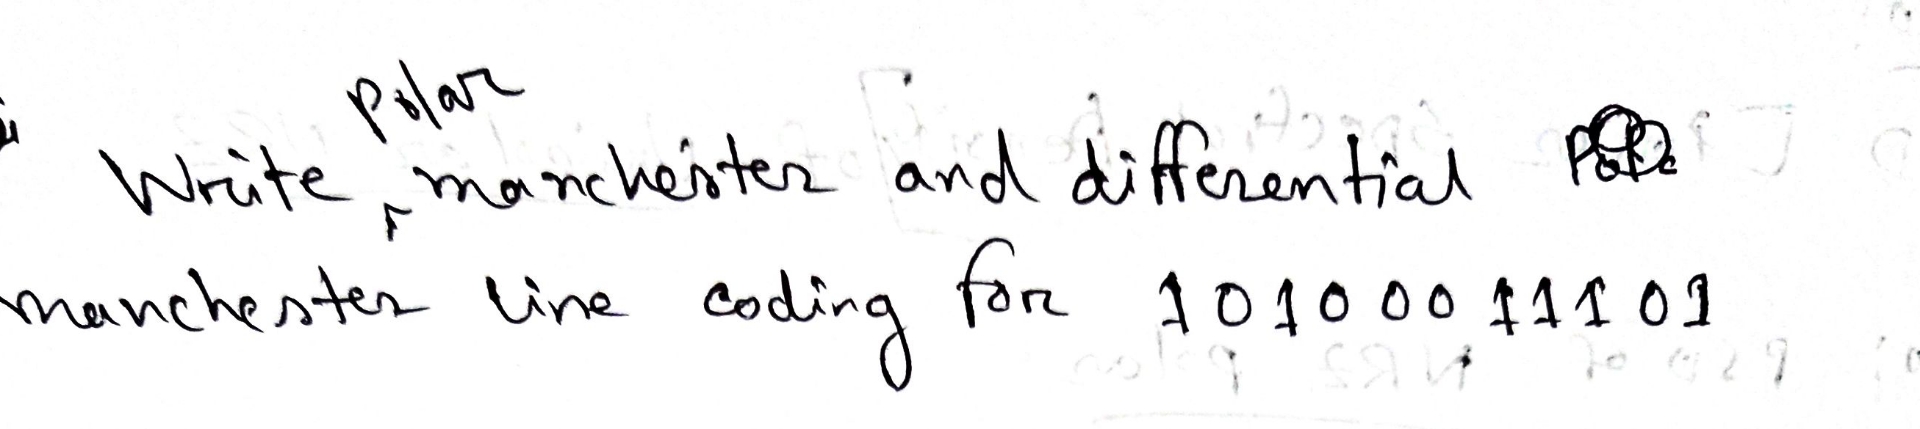 polar
Write, manchester and differential
manchester line coding for 10100011101